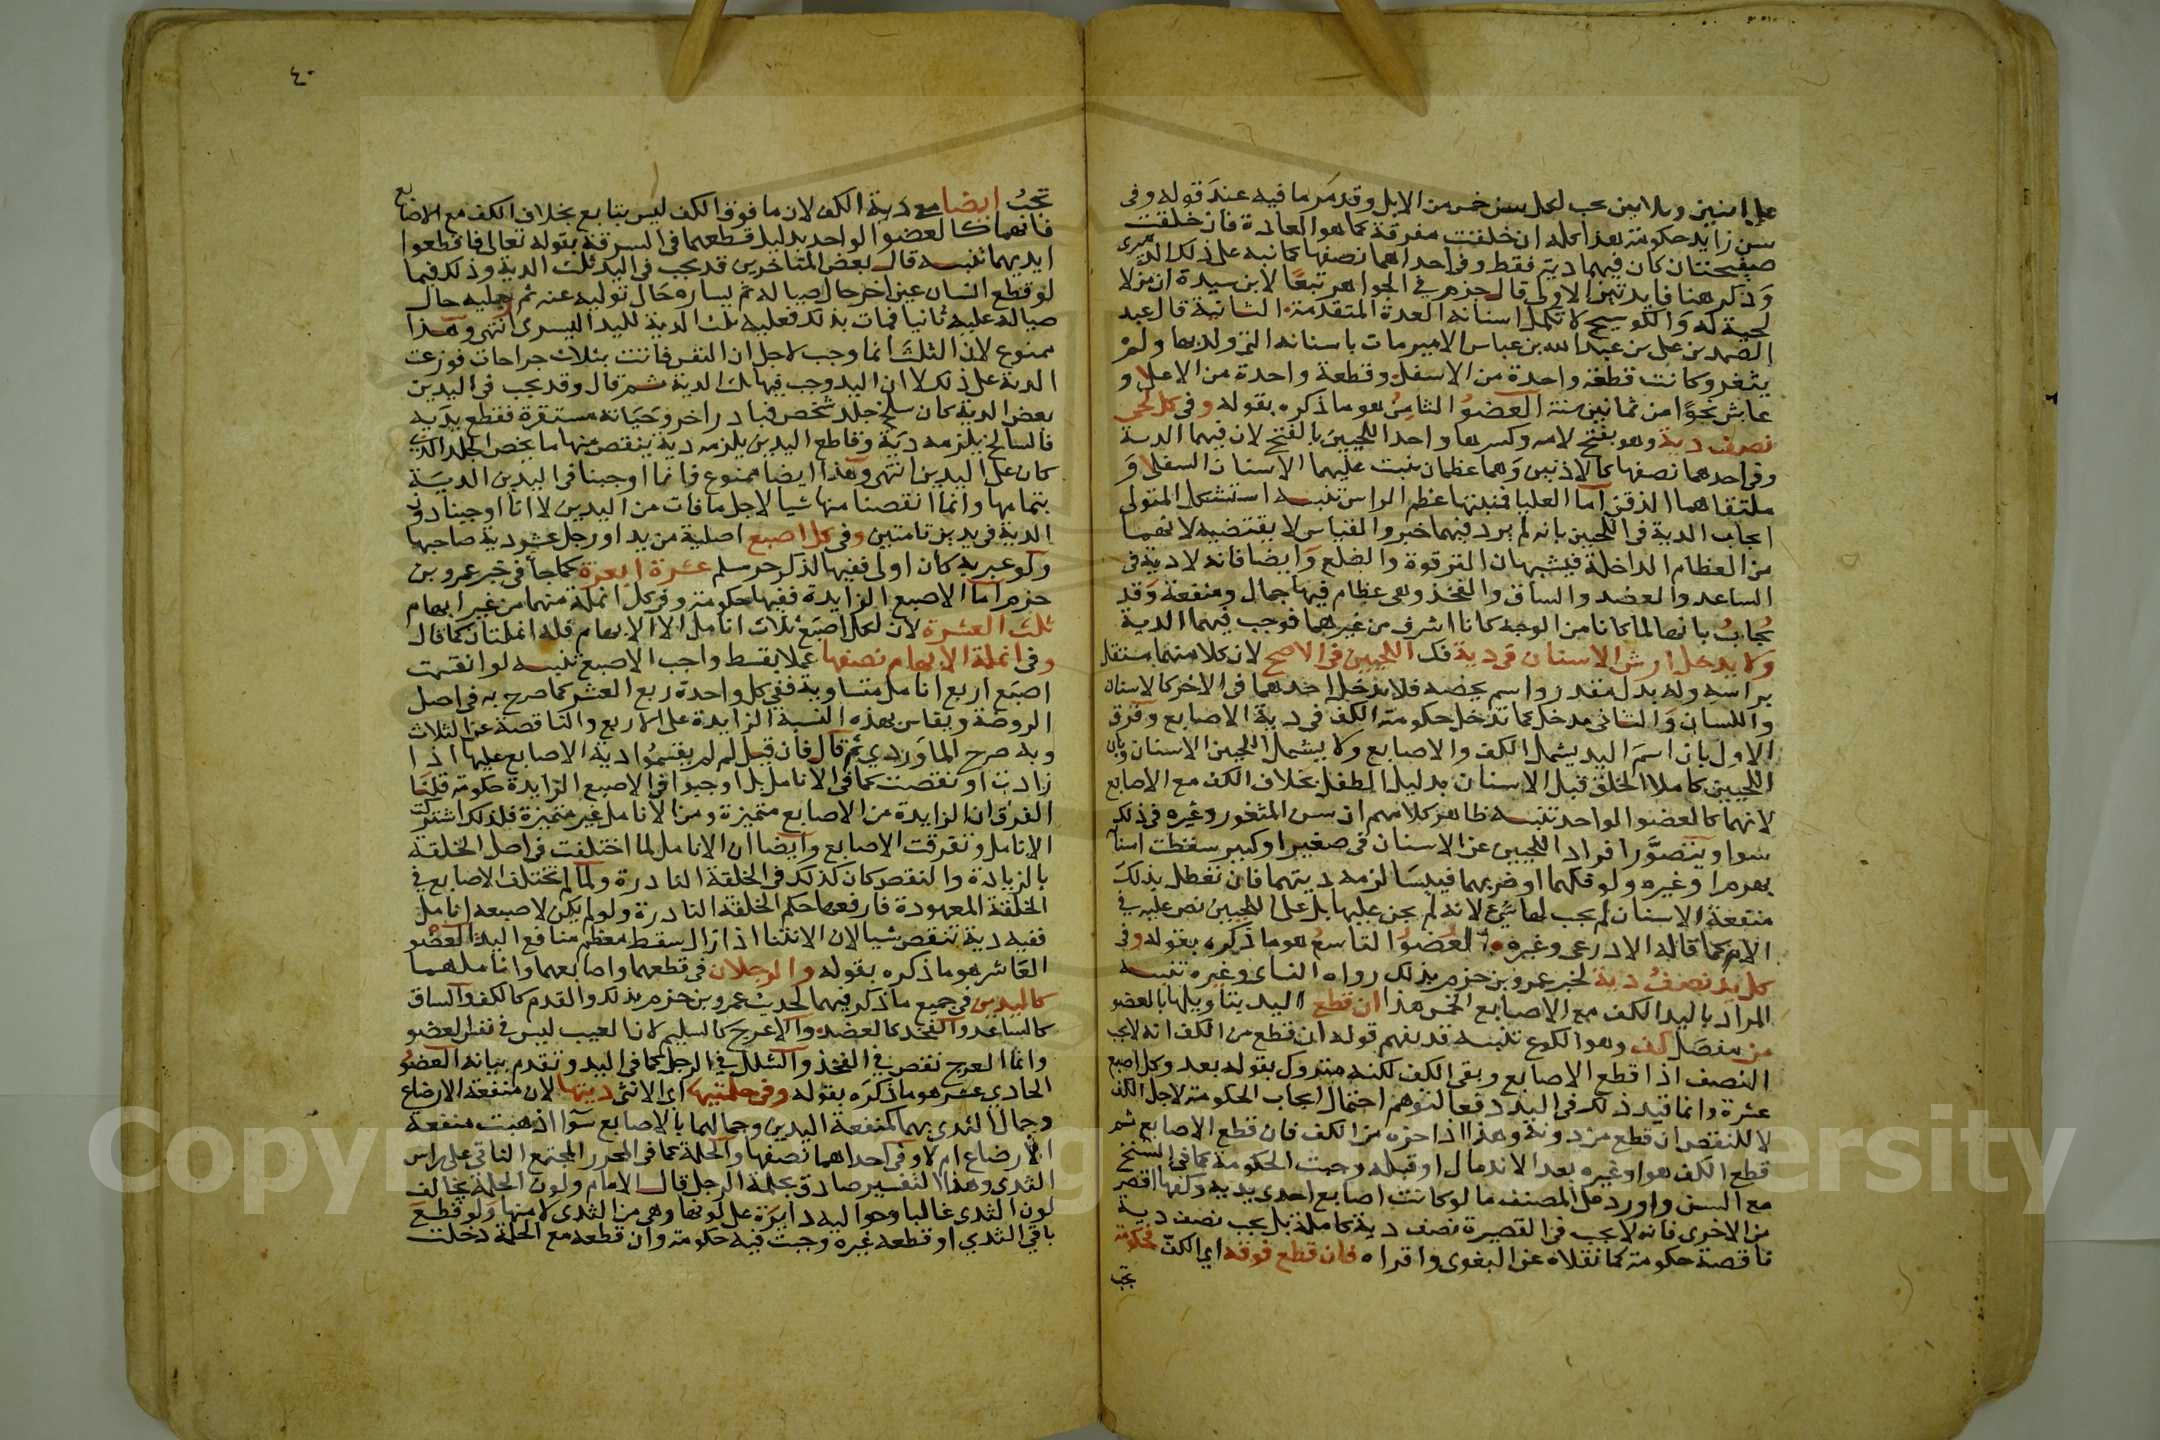 على اثنين وثلاثين يجب لكل سن خمس من الابل وقد مر ما فيه عند قوله وفى
سن زايد حكومة هذا كله ان خلقت مفرقة كما هو العادة فان خلقت
صفيحتان كان فيهما دية فقط وفى احداهما نصفها كما نبه على ذلك الدميرى
وذكر هنا فايدتين الاولى قال جزم في الجواهر تبعًا لابن سيدة ان من لا
لحية له والكوسج لا تكمل اسنانه العدة المتقدمة الثانية قال عبد
الصمد بن على بن عبد الله بن عباس الامير مات باسنانه التى ولد بها ولم
يثغر وكانت قطعة واحدة من الاسفل وقطعة واحدة من الاعلا و
عاش نحوًا من ثمانين سنة العضو الثامن هو ما ذكره بقوله وفى كل لحى
نصف دية وهو بفتح لامه وكسرها واحد اللحيين بالفتح لان فيهما الدية
وفى احدهما نصفها كالاذنين وهما عظمان ينبت عليهما الاسنان السفلا و
ملتقاهما الذقن اما العليا فمنبتها عظم الراس تنبيه استشكل المتولى
ايجاب الدية فى اللحيين بانه لم يرد فيهما خبر والقياس لا يقتضيه لانهما
من العظام الداخلة فيشبهان الترقوة والضلع وايضا فانه لا دية فى
الساعد والعضد والساق والفخذ وهى عظام فيها جمال ومنفعة وقد
يُجاب بانهما لما كانا من الوجه كانا اشرف من غيرهما فوجب فيهما الدية
ولا يدخل ارش الاسنان فى دية فك اللحيين فى الاصح لان كلا منهما مستقل
براسه وله بدل مقدر واسم يخصه فلا يدخل احدهما فى الاخر كالاسنان
واللسان والثانى يدخل كما تدخل حكومة الكف فى دية الاصابع وفرق
الاول بان اسم اليد يشمل الكف والاصابع ولا يشمل اللحيين الاسنان وبان
اللحيين كاملا الخلق قبل الاسنان بدليل الطفل بخلاف الكف مع الاصابع
لانهما كالعضو الواحد تنبيه ظاهر كلامهم ان سن المثغور وغيره فى ذلك
سوا ويتصوّر افراد اللحيين عن الاسنان فى صغير او كبير سقطت اسنانه
بهرم او غيره ولو فكهما او ضربهما فيبسا لزمه ديتهما فان تعطل بذلك
منفعة الاسنان لم يجب لها شئ لانه لم يجن عليها بل على اللحيين نص عليه في
الام كما قاله الاذرعى وغيره العضو التاسع هو ما ذكره بقوله وفى
كل يد نصف دية لخبر عمرو بن حزم بذلك رواه النساى وغيره تنبيه
المراد باليد الكف مع الاصابع الخمس هذا ان قطع اليد بتاويلها بالعضو
من مفصل كف وهو الكوع تنبيه قد يفهم قوله ان قطع من الكف انه لا يجب
النصف اذا قطع الاصابع وبقى الكف لكنه متروك بقوله بعد وكل اصبع
عشرة وانما قيد ذلك فى اليد دفعا لتوهم احتمال ايجاب الحكومة لاجل الكف
لا للنقص ان قطع من دونه وهذا اذا حزه من الكف فان قطع الاصابع ثم
قطع الكف هو او غيره بعد الاندمال او قبله وجبت الحكومة كما فى السنخ
مع السن واورد على المصنف ما لو كانت اصابع احدى يديه وكفها اقصر
من الاخرى فانه لا يجب فى القصيرة نصف دية كاملة بل يجب نصف دية
ناقصة حكومة كما نقلاه عن البغوى واقراه فان قطع فوقه اى الكف فحكومة
تجب
٤٠
تجبُ ايضا مع دية الكف لان ما فوق الكف ليس بتابع بخلاف الكف مع الاصابع
فانهما كالعضو الواحد بدليل قطعهما فى السرقة بقوله تعالى فاقطعوا
ايديهما تنبيه قال بعض المتاخرين قد يجب فى اليد ثلث الدية وذلك فيما
لو قطع انسان يمين اخر حال صياله ثم يساره حال توليه عنه ثم يمليه حال
صياله عليه ثانيا فمات بذلك فعليه ثلث الدية لليد اليسرى انتهى وهذا
ممنوع لان الثلث انما وجب لاجل ان النفس فاتت بثلاث جراحات فوزعت
الدية على ذلك لا ان اليد وجب فيها ثلث الدية ثم قال وقد يجب فى اليدين
بعض الدية كان سلخ جلد شخص فبادر اخر وحياته مستقرة فقطع يديه
فالسالخ يلزمه دية وقاطع اليدين يلزمه دية ينقص منها ما يخص الجلد الذى
كان على اليدين انتهى وهذا ايضا ممنوع فانما اوجبنا فى اليدين الدية
بتمامها وانما انقصنا منها شيا لاجل ما فات من اليدين لا انا اوجبنا دون
الدية فى يدين تامتين وفى كل اصبع اصلية من يد او رجل عشر دية صاحبها
ولو عبر به كان اولى ففيها لذكر حر مسلم عشرة ابعرة كما جا فى خبر عمرو بن
حزم اما الاصبع الزايدة ففيها حكومة وفى كل انملة منهما من غير ابهام
ثلث العشرة لان لكل اصبع ثلاث انامل الا الابهام فله انملتان كما قال
وفى انملة الابهام نصفها عملا بقسط واجب الاصبع تنبيه لو انقسمت
اصبع اربع انامل متساوية ففى كل واحدة ربع العشر كما صرح به فى اصل
الروضة ويقاس بهذه النسبة الزايدة على الاربع والناقصة عن الثلاث
وبه صرح الماوردي ثم قال فان قيل لم لم يقسمُوا دية الاصابع عليها اذا
زادت او نقصت كما فى الانامل بل اوجبوا فى الاصبع الزايدة حكومة قلنا
الفرق ان الزايدة من الاصابع متميزة ومن الانامل غير متميزة فلذلك اشتركت
الانامل وتفرقت الاصابع وايضا ان الانامل لما اختلفت فى اصل الخلقة
بالزيادة والنقص كان كذلك فى الخلقة النادرة ولما لم تختلف الاصابع في
الخلقة المعهودة فارقها حكم الخلقة النادرة ولو لم يكن لاصبعه انامل
ففيه دية تنقص شيا لان الانثنا اذا زال سقط معظم منافع اليد العضو
العاشر هو ما ذكره بقوله والرجلان فى قطعهما واصابعهما واناملهما
كاليدين فى جميع ما ذكر فيهما لحديث عمرو بن حزم بذلك والقدم كالكف والساق
كالساعد والفخذ كالعضد والاعرج كالسليم لان العيب ليس فى نفس العضو
وانما العرج نقص في الفخذ والشلل في الرجل كما فى اليد وتقدم بيانه العضو
الحادى عشر هو ما ذكره بقوله وفى حلمتيها اى الانثى ديتها لان منفعة الارضاع
وجمال الثدى بهما كمنفعة اليدين وجمالهما بالاصابع سوآ اذهبت منفعة
الارضاع ام لا وفى احداهما نصفها والحلمة كما فى المحرر المجتمع الناتى على راس
الثدى وهذا التفسير صادق بحلمة الرجل قال الامام ولون الحلمة يخالف
لون الثدى غالبا وحواليه دايرة على لونها وهى من الثدى لا منها ولو قطع
باقى الثدي او قطعه غيره وجبت فيه حكومة وان قطعه مع الحلمة دخلت